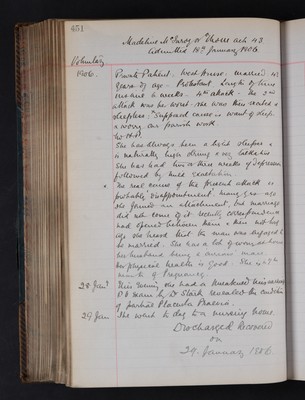 451
Madeline McInroy or Thoms aet 43
Admitted 18th January 1906
Voluntary
1906. Private Patient. West House. Married. 43
years of age. Protestant. Length of time
insane 2 weeks. 4th attack. The 2nd
attack was the worst. She was then excited &
sleepless. Supposed cause is want of sleep
& worry over parish work
No H.P.
She has always been a light sleeper &
is naturally high strung &
She has had two or three weeks of depression
followed by mild exaltation
x The real cause of the present attack is
probably disappointment. Many years ago
she formed an attachment, but marriage
did not come of it. Recently correspondence
had opened between them & then not long
ago she heard that the man was engaged to
be married. She has a lot of worry at home
her husband being a nervous man
her physical health is good. She is 7th
month of Pregnancy.
28 Jany This evening she had a threatened miscarriage
P.V. exam by Dr revealed the condition
of partial Placenta Praevia.
29 Jan She went to day to a nursing home
Discharged Recovered
on
29. January 1906.